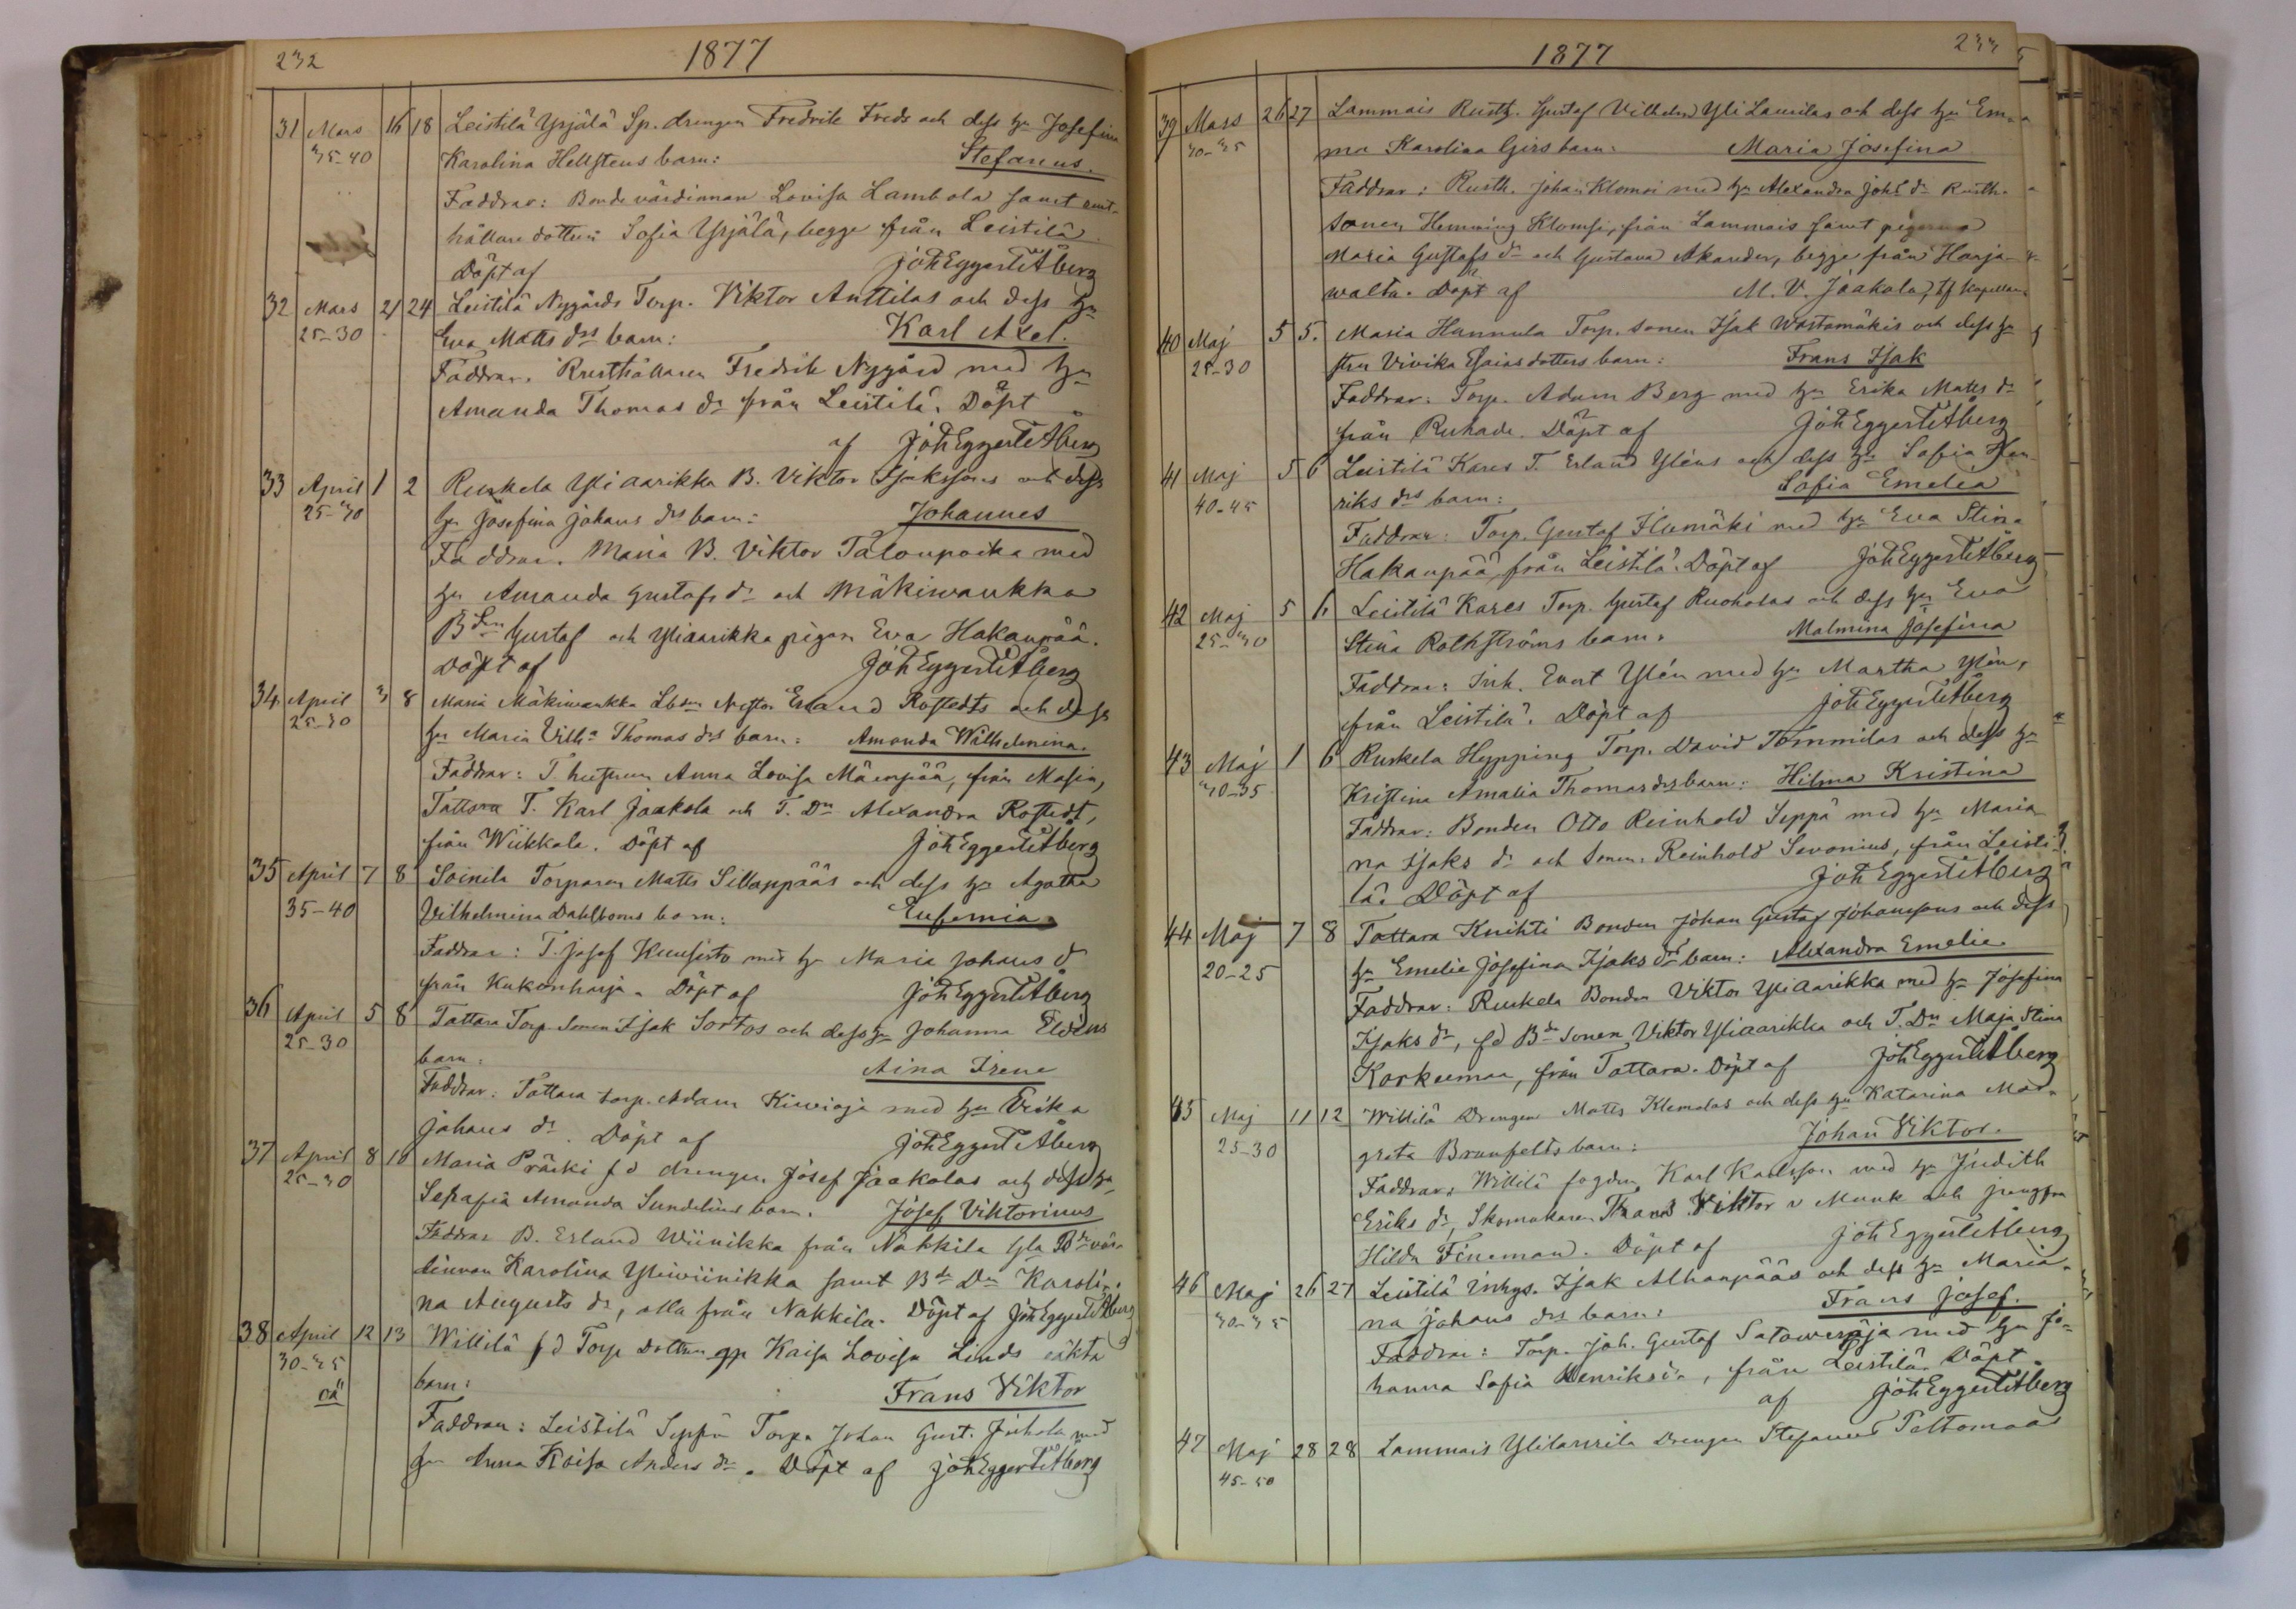 232
1877
31 Mars 16 18 Leistilä Yrjälä Sp. drengen Fredrik Freds och dess h:u Josefina
35-40 Karolina Hellstens barn: Stefanus.
Faddrar: Bondevärdinnan Lovisa Lambola samt rust-
hållaredottern Sofia Yrjälä, begge från Leistilä
Döpt af Joh Eggert Titus Åberg
32 Mars 21 24 Leistilä Nygårds Torp. Viktor Anttilas och dess h:u
25-30 Eva Matts drs barn: Karl Axel.
Faddrar. Rusthållaren Fredrik Nygård med h:u
Amanda Thomas dr från Leistilä. Döpt
af Joh Eggert Tit Åberg
33 April 1 2 Ruskela Yliaarikka B. Viktor Isakssons och dess
25-30 h:u Josefina Johans drs barn: Johannes
Faddrar. Maria B. Viktor Talonpoika med
h:u Amanda Gustafs dr och Mäkiwaukka
B Son Gustaf och Yliaarikka pigan Eva Hakanpää.
Döpt af Joh Eggert Tit Åberg
34 April 3 8 Maria Mäkiwaukka Erland Rostedts och dess
25-30 h:u Maria Vilh:a Thomas drs barn: Amanda Wilhelmina.
Faddrar: T. hustrun Anna Lovisa Mäenpää, från Masia,
Tattara T. Karl Jaakola och T. Dn Alexandra Rostedt,
från Wiikkala. Döpt af Joh Eggert Tit Åberg
35 April 7 8 Soinila Torparen Matts Sillanpääs och dess h:u Agatha
35-40 Vilhelmina Dahlboms barn: Eufemia
Faddrar: T. Josef Kuusisto med h:u Maria Johans d
från Kukonharja. Döpt af Joh Eggert Tit Åberg
36 April 5 8 Tattara Torp. Sonen Isak Sortos och dess h:u Johanna
25-30 barn: Aina Irene
Faddrar: Tattara torp. Adam Kiwioja med h:u Erika
Johans dr. Döpt af Joh Eggert Tit Åberg
37 April 8 10 Maria Präski fd drengen Josef Jaakolas och dess h:u
25-30 Serafia Amanda Sundelins barn. Josef Viktorinus
Faddrar B. Erland Wiinikka från Nakkila Gla Bde vär-
dinnan Karolina Yliwiinikka samt Bde Dn Karoli-
na Augusts dr, alla från Nakkila. Döpt af Joh Eggert Tit Åberg
38 April 12 13 Willilä fd Torp. Dottern Kaisa Lovisa Linds oäkta
30-35 barn: Frans Viktor
oä
Faddrar: Leistilä Seppä Torpa Johan Gust. Juhola med
h:u Anna Kaisa Anders dr. Döpt af Joh Eggert Tit Åberg
233
1877
39 Mars 26 27 Lammais Rusth. Gustaf Vilhelm Yli Laurilas och dess h:u Em-
30-35 ma Karolina Girs barn: Maria Josefina
Faddrar: Rusth. Johan Klomsi med h:u Alexandra Johs dr Rusth.
sonen Hemming Klomsi, från Lammais samt pigorna
Maria Gustafs dr och Gustava Akander, begge från Harja-
walta. Döpt af M. V. Jaakola, tf Kapellan
40 Maj 5 5. Masia Hannula Torp. sonen Isak Wästämäkis och dess hu
25-30 stru Vivika Esaiasdotters barn: Frans Isak
Faddrar. Torp. Adam Berg med h:u Erika Matts dr
från Ruhade. Döpt af Joh Eggert Tit Åberg
41 Maj 5 6 Leistilä Kares T. Erland Yléns och dess h:u Sofia Hen-
40-45 riks drs barn: Sofia Emelia
Faddrar: Torp. Gustaf Ilumäki med h:u Eva Stina
Hakanpää, från Leistilä. Döpt af Joh Eggert Tit Åberg
42 Maj 5 6 Leistilä Kares Torp. Gustaf Ruoholas och dess h:u Eva
25-30 Stina Rothströms barn. Malmina Josefina
Faddrar: Inh. Evert Ylén med h:u Martha Ylén,
från Leistilä. Döpt af Joh Eggert Tit Åberg
43 Maj 1 6 Ruskela Hypping Torp. David Tommilas och dess h:u
30-35 Kristina Amalia Thomas drs barn: Hilma Kristina
Faddrar: Bonden Otto Reinhold Seppä med h:u Maria-
na Isaks dr och Reinhold Sevonius, från Leisti-
lä. Döpt af Joh Eggert Tit Åberg
44 Maj 7 8 Tattara Knihti Bonden Johan Gustaf Johanssons och dess
20-25 h:u Emelie Josefina Isaks drs barn: Alexandra Emelie
Faddrar: Ruskela Bonden Viktor Yliaarikka med h:u Josefina
Isaks dr, fd Bde sonen Viktor Yliaarikka och T. Dn Maja Stina
Korkeemaa, från Tattara. Döpt af Joh Eggert Tit Åberg
45 Maj 11 12 Willilä Drengen Matts Klemolas och dess h:u Katarina Mar-
25-30 greta Brunfelts barn: Johan Viktor.
Faddrar: Willilä fogden Karl Karlsson med h:u Judith
Eriks dr, Skomakaren Frans Viktor Munk och jungfru
Hilda Fineman. Döpt af Joh Eggert Tit Åberg
46 Maj 26 27 Leistilä Inhys. Isak Alhanpääs och dess h:u Maria-
30-35 na Johans drs barn: Frans Josef.
Faddrar: Torp. Joh. Gustaf Satowenoja med h:u Jo-
hanna Sofia Henriksdr, från Leistilä. Döpt
af Joh Eggert Tit Åberg
47 Maj 28 28 Lammais Ylilaurila Drengen Stefanus Peltomaas
45-50